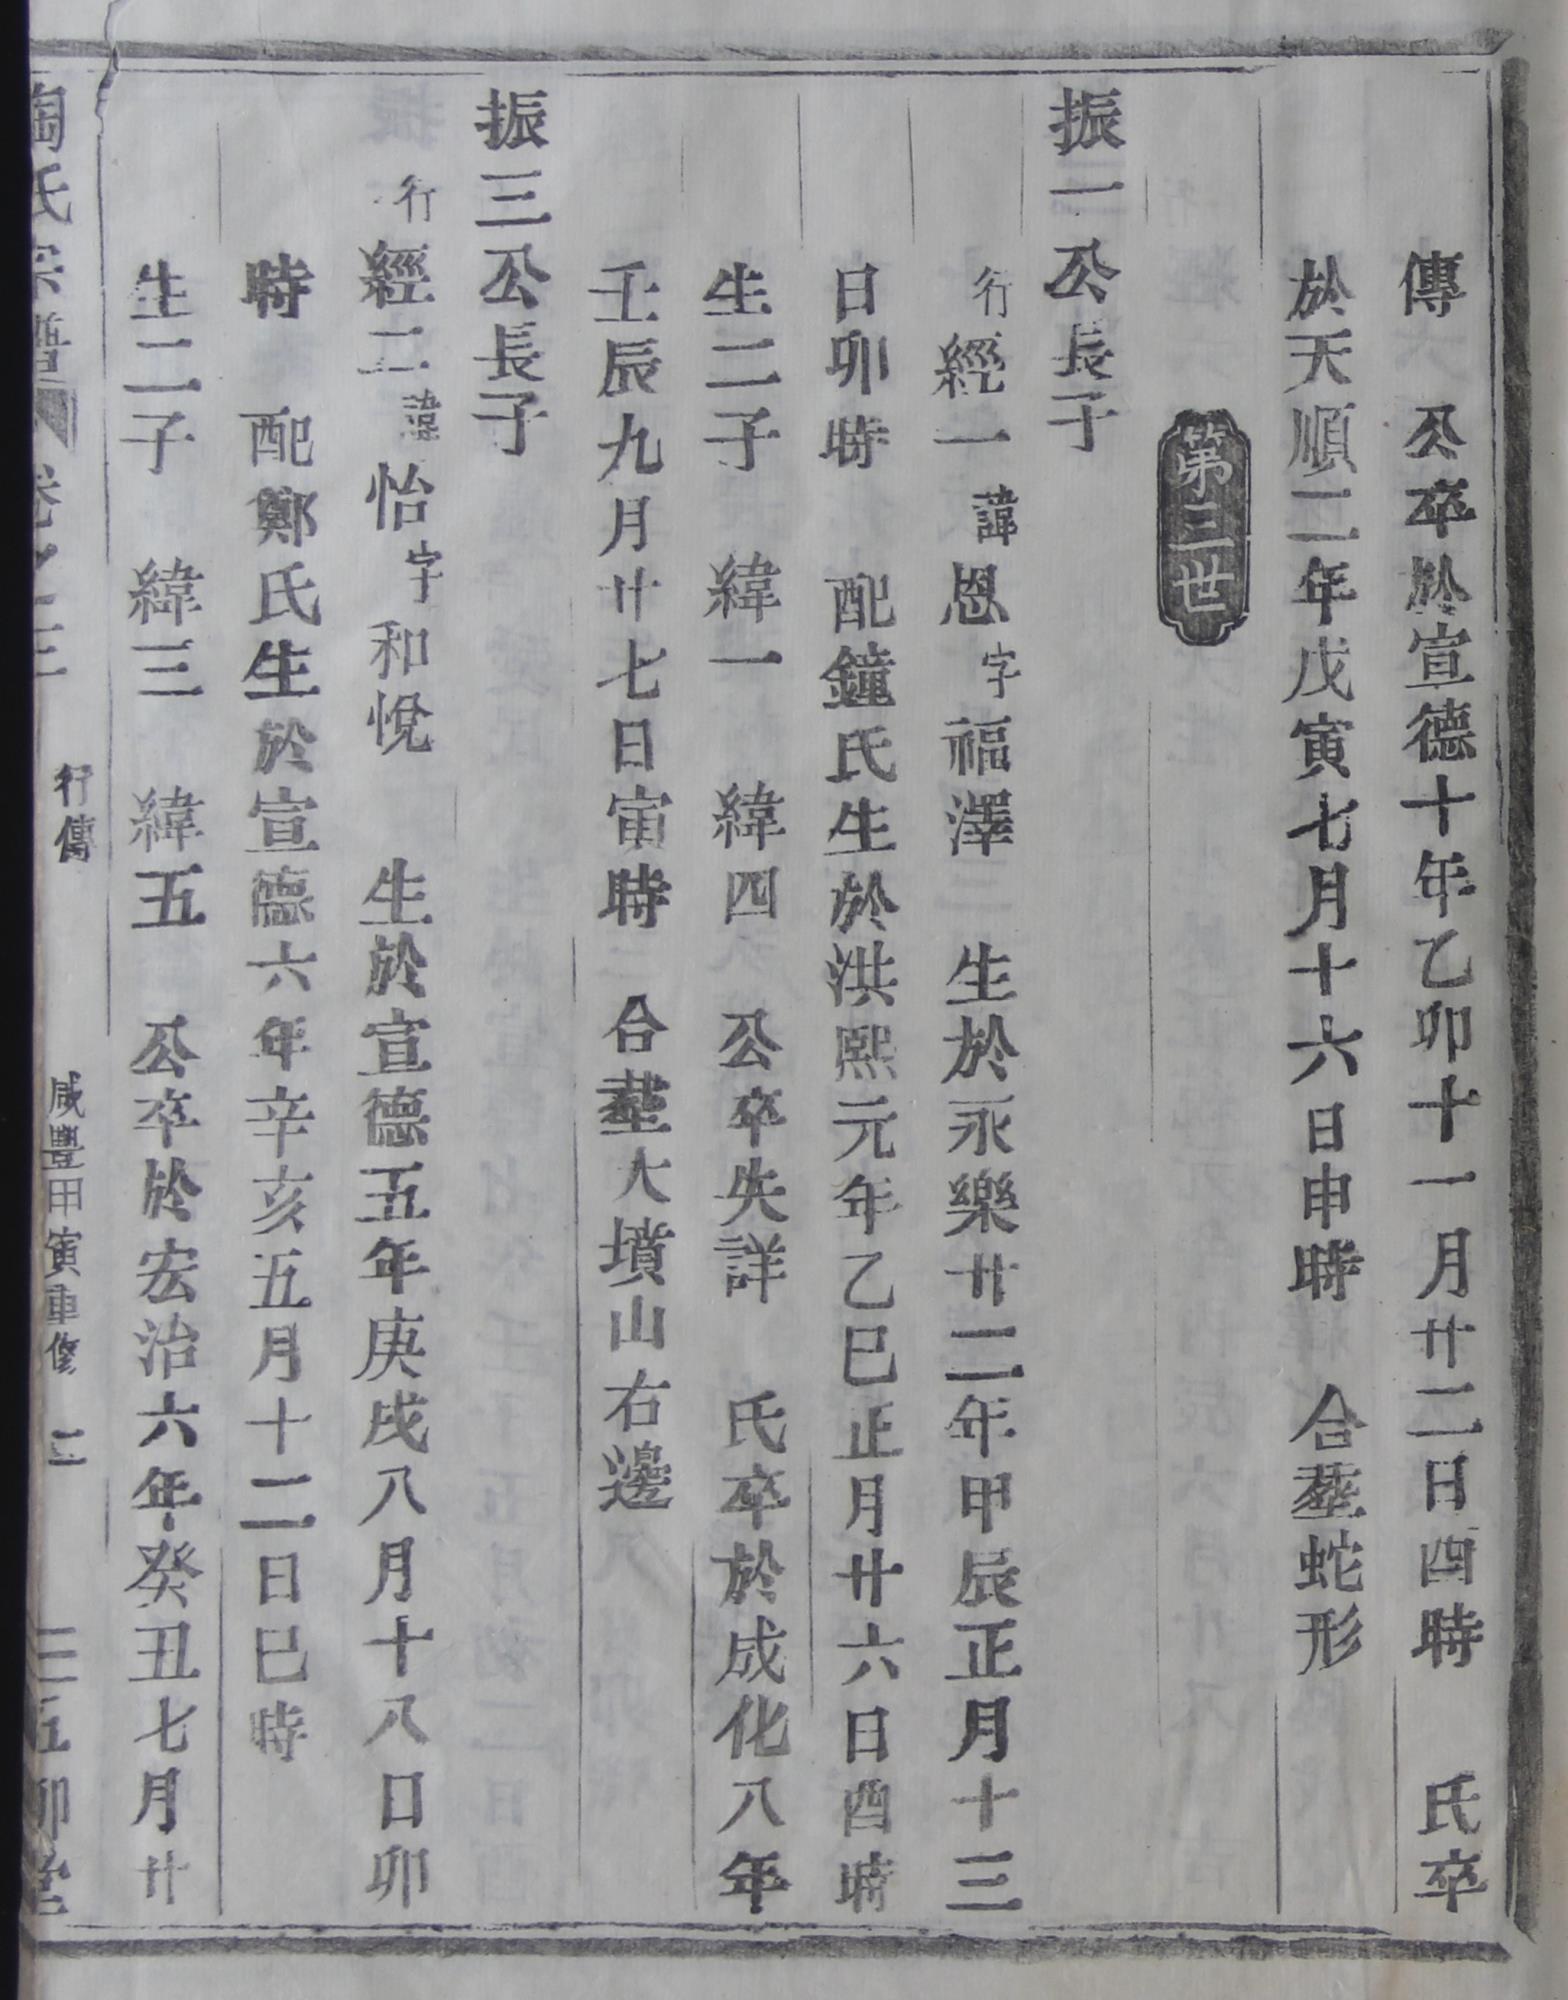 傳　公卒於宣德十年乙卯十一月廿二日酉時　氏卒
於天順二年戊寅七月十六日申時　合塟蛇形
第三世
振一公長子
行經一諱恩字福澤　生於永樂廿二年甲辰正月十三
日卯時　配鐘氏生於洪熙元年乙巳正月廿六日酉時
生二子　緯一　緯四　公卒失詳　氏卒於成化八年
壬辰九月廿七日寅時　合塟大墳山右邊
振三公長子
行經二諱怡字和悅　生於宣德五年庚戌八月十八日卯
時　配鄭氏生於宣德六年辛亥五月十二日巳時
生二子　緯三　緯五　公卒於宏治六年癸丑七月廿
陶氏宗譜　卷之三　行傳　咸豐甲寅重修　二　三五柳堂